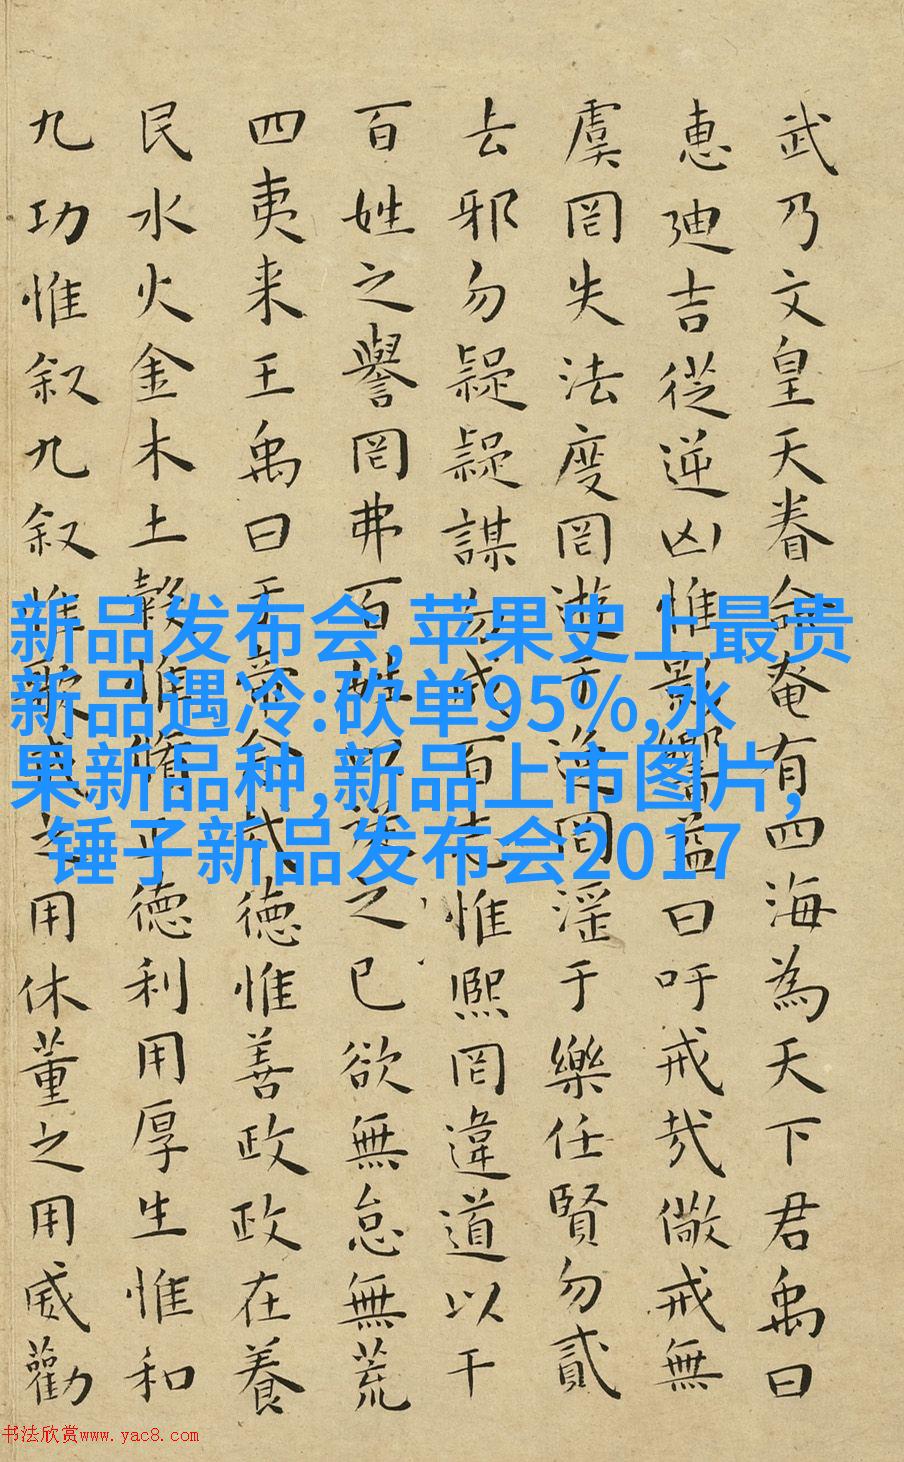 武乃文皇天眷命奄有四海為天下君禹曰
惠迪吉從逆凶惟影響益曰吁戒哉儆戒無
虞罔失法度罔遊于逸罔淫于樂任賢勿貳
去邪勿疑疑謀勿成百志惟熙罔違道以干
百姓之譽罔弗百姓以從之己欲無怠無荒
四夷来王禹曰於帝念哉德惟善政政在養
民水火金木土穀惟脩正德利用厚生惟和
九功惟叙九叙惟歌戒之用休董之用威勸
新品发布会,苹果史上最贵
新品遇冷:砍单95%,水
果新品种,新品上市图片,
锤子新品发布会2017
书法欣赏www.yac8.com